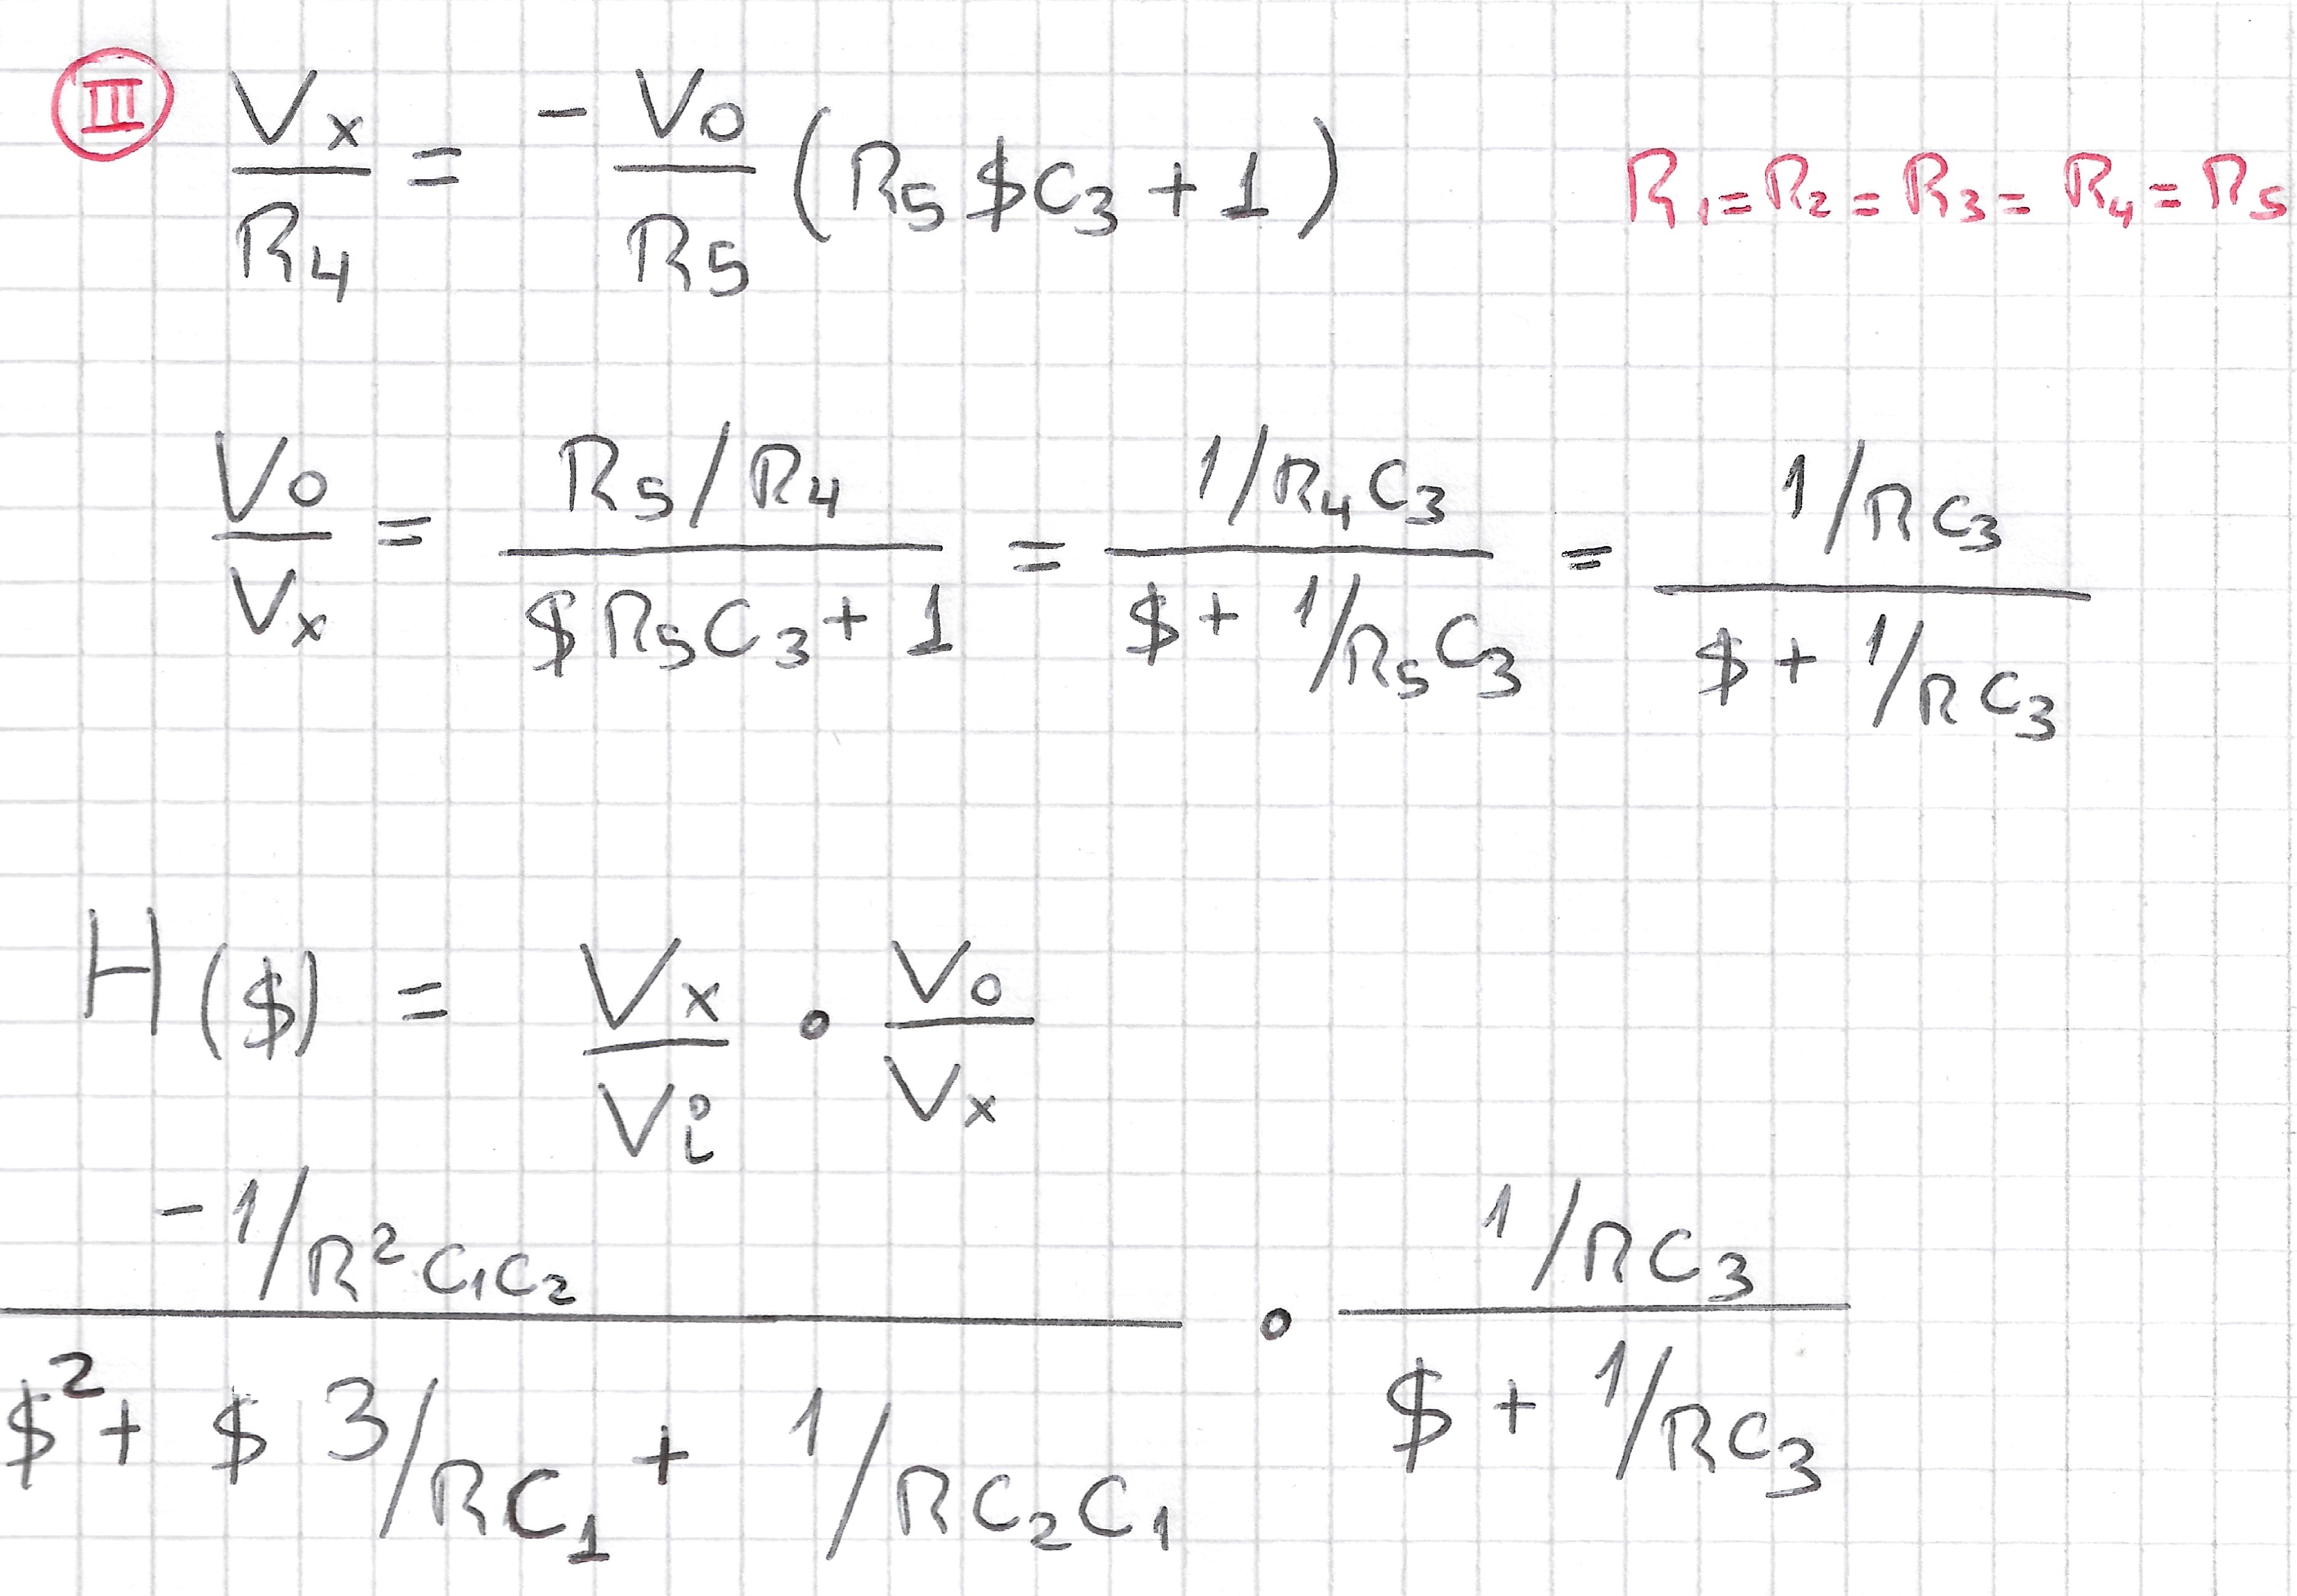 III Vx/R4 = - Vo/R5 (R5 $C3 + 1) R1 = R2 = R3 = R4 = R5
Vo/Vx = (R5/R4)/($R5C3 + 1) = (1/R4C3)/($ + 1/R5C3) = (1/RC3)/($ + 1/RC3)
H($) = Vx/Vi · Vo/Vx
(-1/R²C1C2)/($² + $ 3/RC1 + 1/RC2C1) · (1/RC3)/($ + 1/RC3)